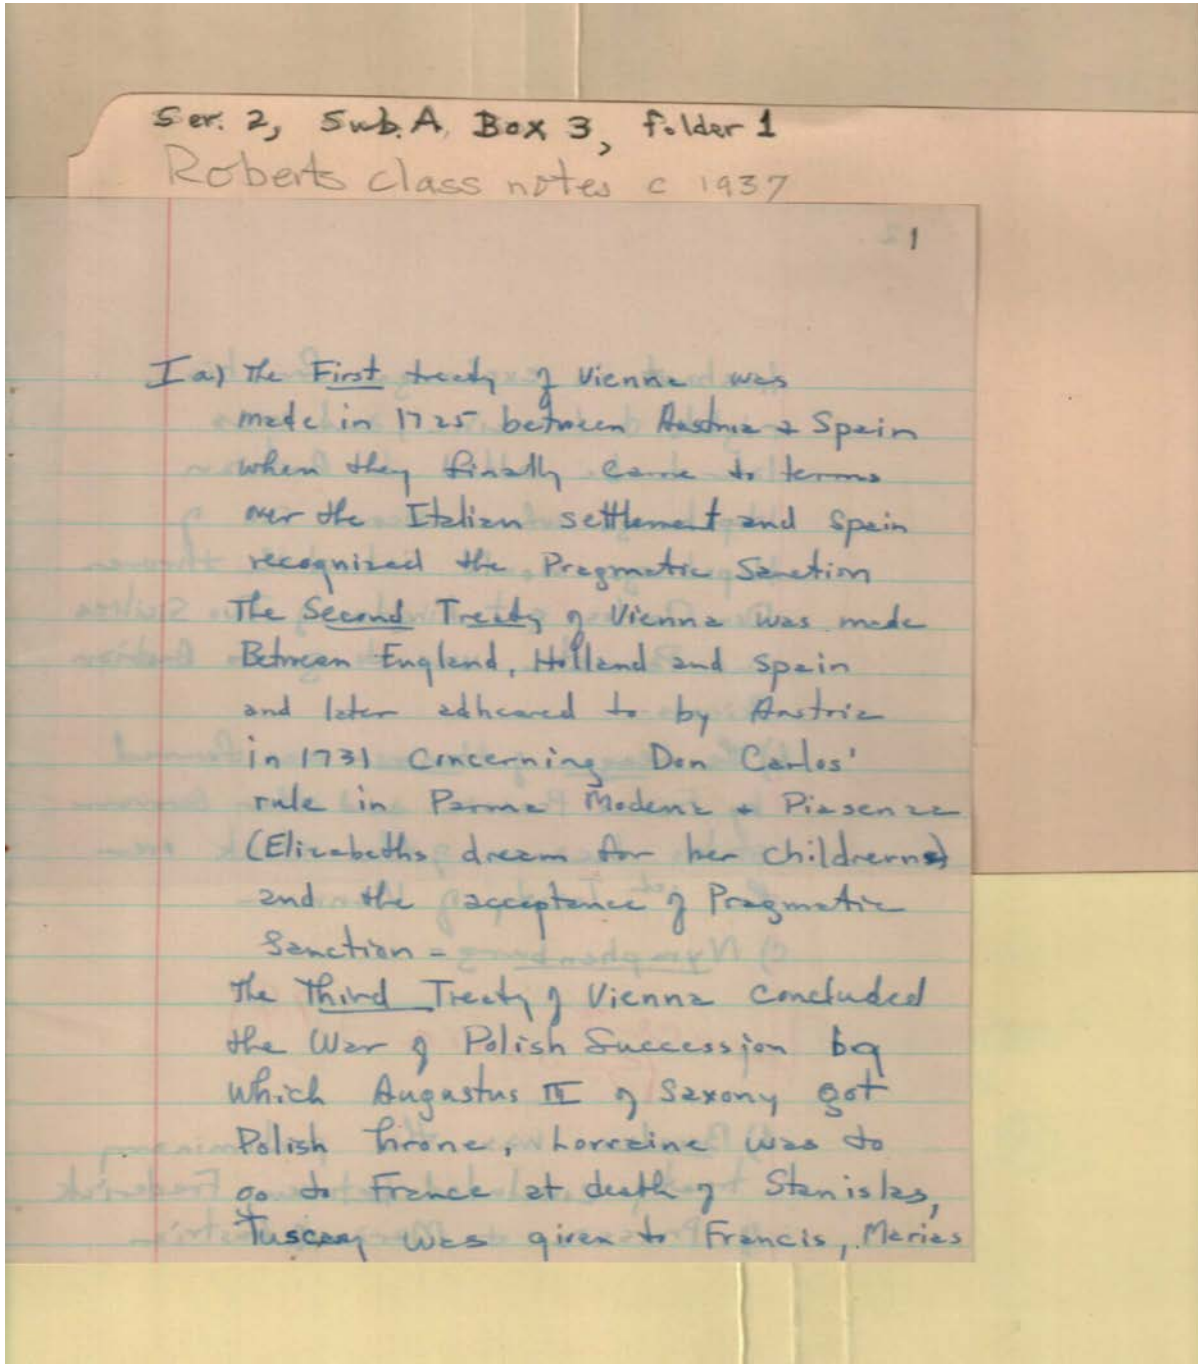 Ser. 2, Sub. A, Box 3, folder 1
Roberts class notes c 1937
1
I a) The First treaty of Vienna was
made in 1725 between Austria & Spain
when they finally came to terms
over the Italian settlement and Spain
recognized the Pragmatic Sanction
The Second Treaty of Vienna was made
Between England, Holland and Spain
and later adheared to by Austria
in 1731 concerning Don Carlos'
rule in Parma Modena & Piasenza
(Elizabeths dream for her childrern)
and the acceptance of Pragmatic
Sanction -
The Third Treaty of Vienna concluded
the War of Polish Succession by
which Augustus III of Saxony got
Polish hrone, Lorraine was to
go to France at death of Stanislas,
Tuscany was given to Francis, Marias